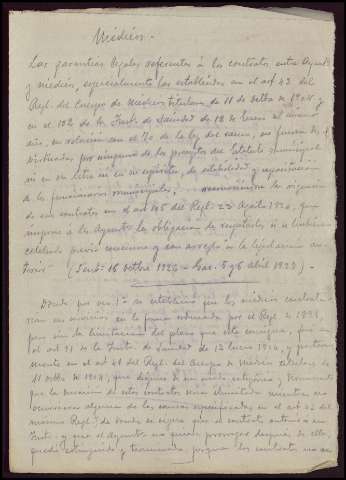 Médicos.
Las garantías legales referentes á los contratos entre Ayunt
y médicos, especialmente las establecidas en el art 42 del
Regl. del Cuerpo de Médicos titulares de 11 de Octbre de 1904 y
en el de la Inst. de Sanidad de 12 de Enero
año, en relación con el 70 de la ley del ramo, no fueron
por ninguno de los preceptos del Estatuto municipal
ni en su letra ni en su espíritu, de estabilidad y
de los funcionarios municipales; la vigencia
de sus contratos en el art del Regl. 23 Agosto 1924, que
impone á los Ayuntos la obligación de respetarlos si se hubieran
celebrado previo concurso y con arreglo á la legislación an
terior (Sentª 16 octbre 1926 - Gac. 5 y 6 abril 1927) -
Donde por se establecía que los médicos
en servicios en la forma ordenada por el Regl. de 1891,
pero sin la limitación del plazo que este consigna, fué en
el art 91 de la Inst. de Sanidad de 12 Enero 1904, y
mente en el art 41 del Regl. del Cuerpo de Médicos titulares de
11 octbre de 1904, que dispuso de un modo categórico y terminante
que la duración de estos contratos sería ilimitada mientras no
ocurriera alguna de las causas especificadas en el art 42 del
mismo Regl. de donde se sigue que el contrato
y que el Ayunto no puede después de ello,
extinguido y terminado, porque los contratos no se